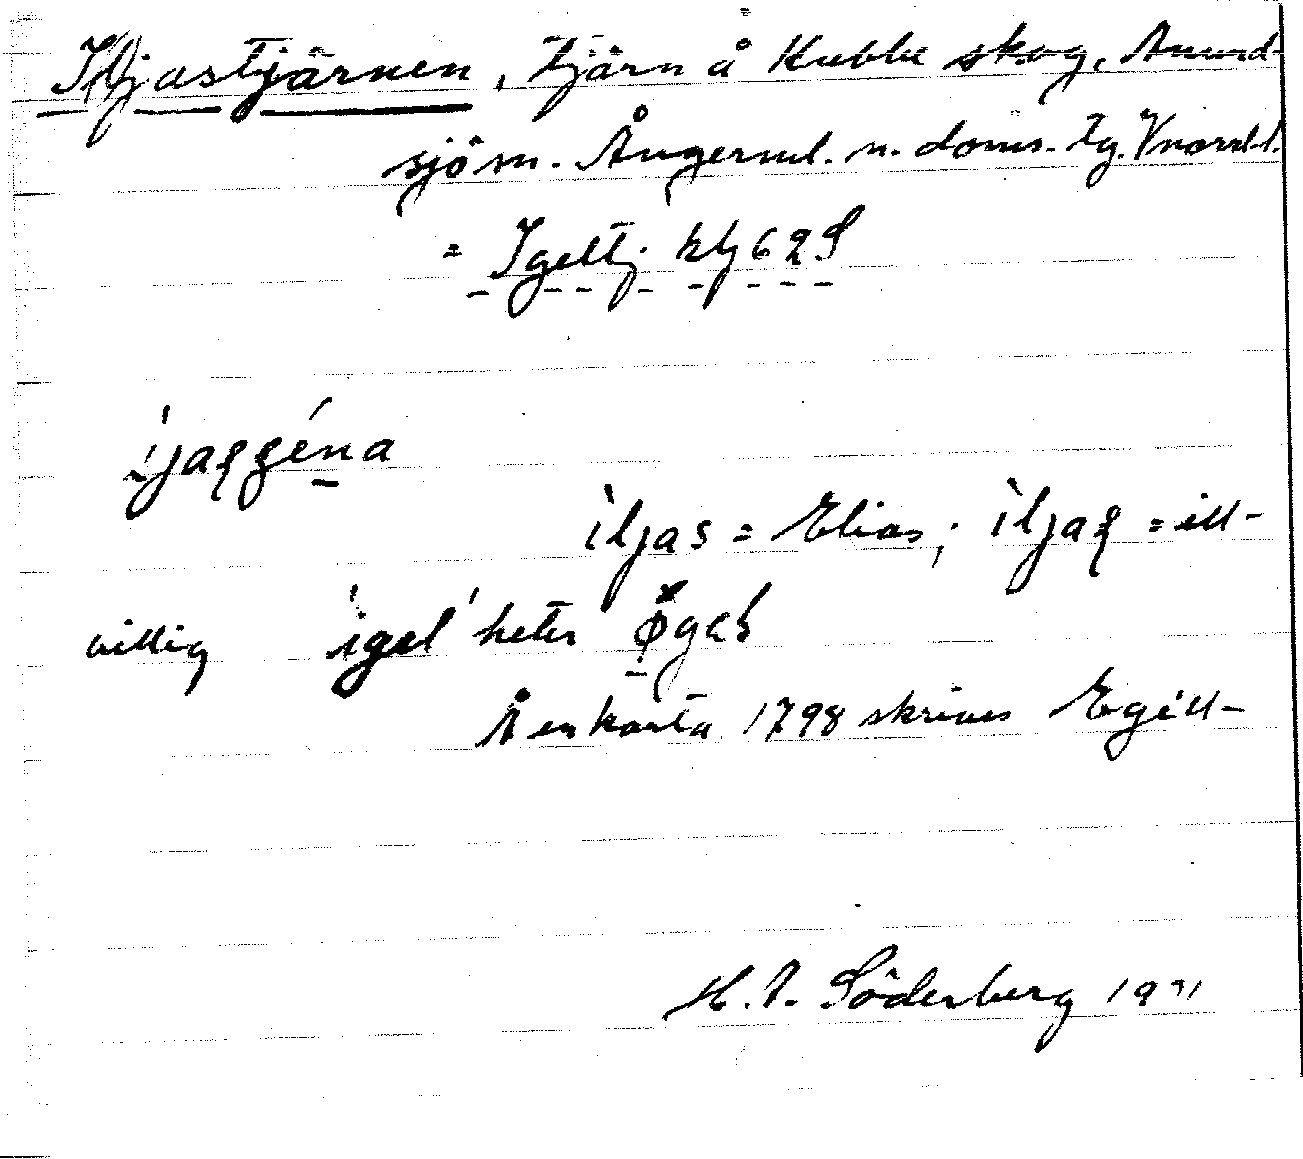 Iljastjärnen, tjärn å Kubbe skog, Anund-
sjö sn. Ångerml. n. doms. tg. Vnorrl. l.
= Igeltj. kbl 62 S
iljas = Elias; iljaș = ill-
villig igel heter øgəl
Å en karta 1798 skrives Egill-
H. A. Söderberg 1931